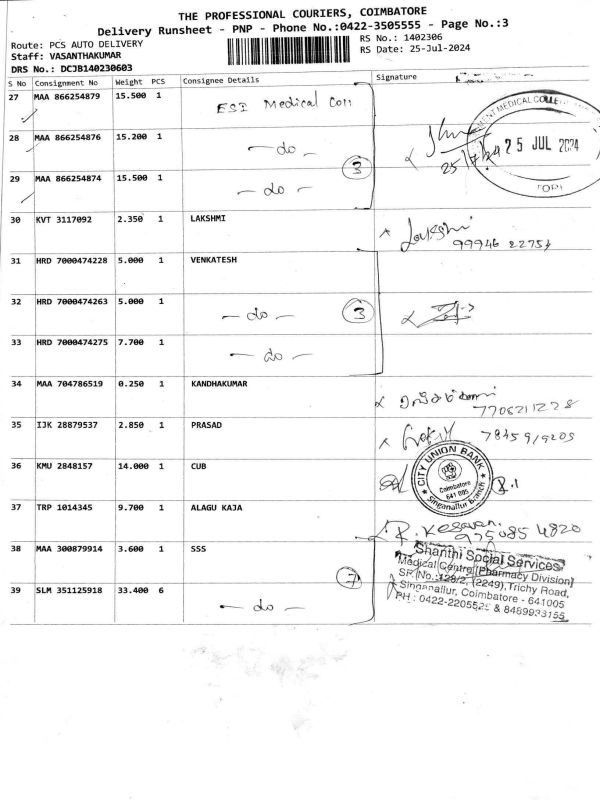 THE PROFESSIONAL COURIERS, COIMBATORE
Delivery Runsheet - PNP - Phone No.:0422-3505555 - Page No.:3
Route: PCS AUTO DELIVERY
RS No.: 1402306
Staff: VASANTHAKUMAR
RS Date: 25-Jul-2024
DRS No.: DCJB140230603
S No Consignment No Weight PCS Consignee Details Signature
27 MAA 866254879 15.500 1 ESI Medical Coll
28 MAA 866254876 15.200 1 — do —
25/7/24
25 JUL 2024
3
29 MAA 866254874 15.500 1 — do —
30 KVT 3117092 2.350 1 LAKSHMI
Lakshmi
99946 22751
31 HRD 7000474228 5.000 1 VENKATESH
32 HRD 7000474263 5.000 1 — do —
3
33 HRD 7000474275 7.700 1 — do —
34 MAA 704786519 0.250 1 KANDHAKUMAR
35 IJK 28879537 2.850 1 PRASAD
36 KMU 2848157 14.000 1 CUB
CITY UNION BANK
Coimbatore
641 005
Singanallur Branch
37 TRP 1014345 9.700 1 ALAGU KAJA
R. Kesavan
975085 4820
38 MAA 300879914 3.600 1 SSS
7
39 SLM 351125918 33.400 6 — do —
Shanthi Social Services
Medical Centre [Pharmacy Division]
SF.No.:128/2, (2249), Trichy Road,
Singanallur, Coimbatore - 641005
PH : 0422-2205525 & 8489933155